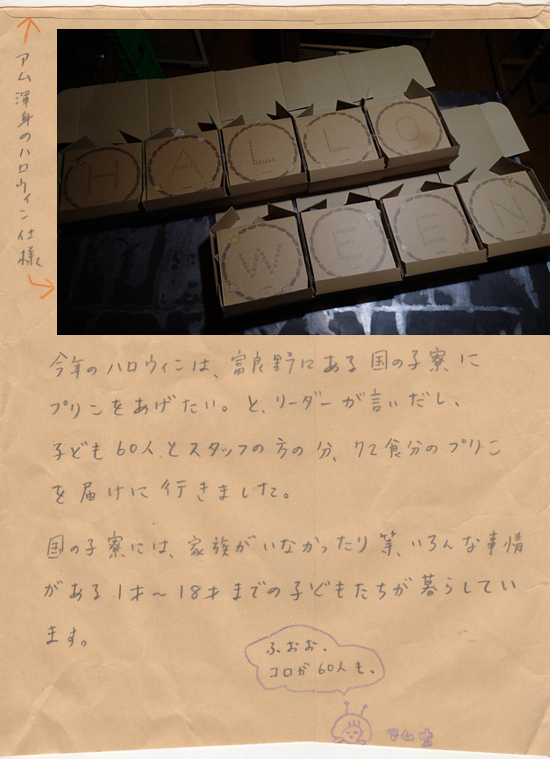 アム渾身のハロウィン仕様
HALLO
WEEN
今年のハロウィンは、富良野にある国の子寮に
プリンをあげたい。と、リーダーが言いだし、
子ども60人とスタッフの方の分、72食分のプリン
を届けに行きました。
国の子寮には、家族がいなかったり等、いろんな事情
がある1才～18才までの子どもたちが暮らしてい
ます。
ふぉぉ、
コロが60人も、